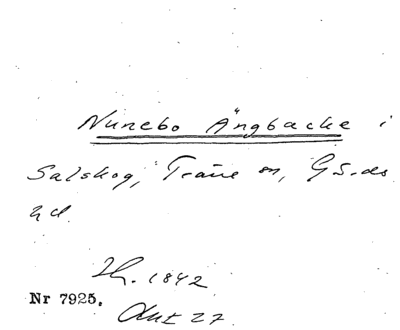 Nunebo Ängbacke i
Salskog, Tråne sn, Gä.ds
hd.
Th. 1842
Nr 7925.
Ant 27